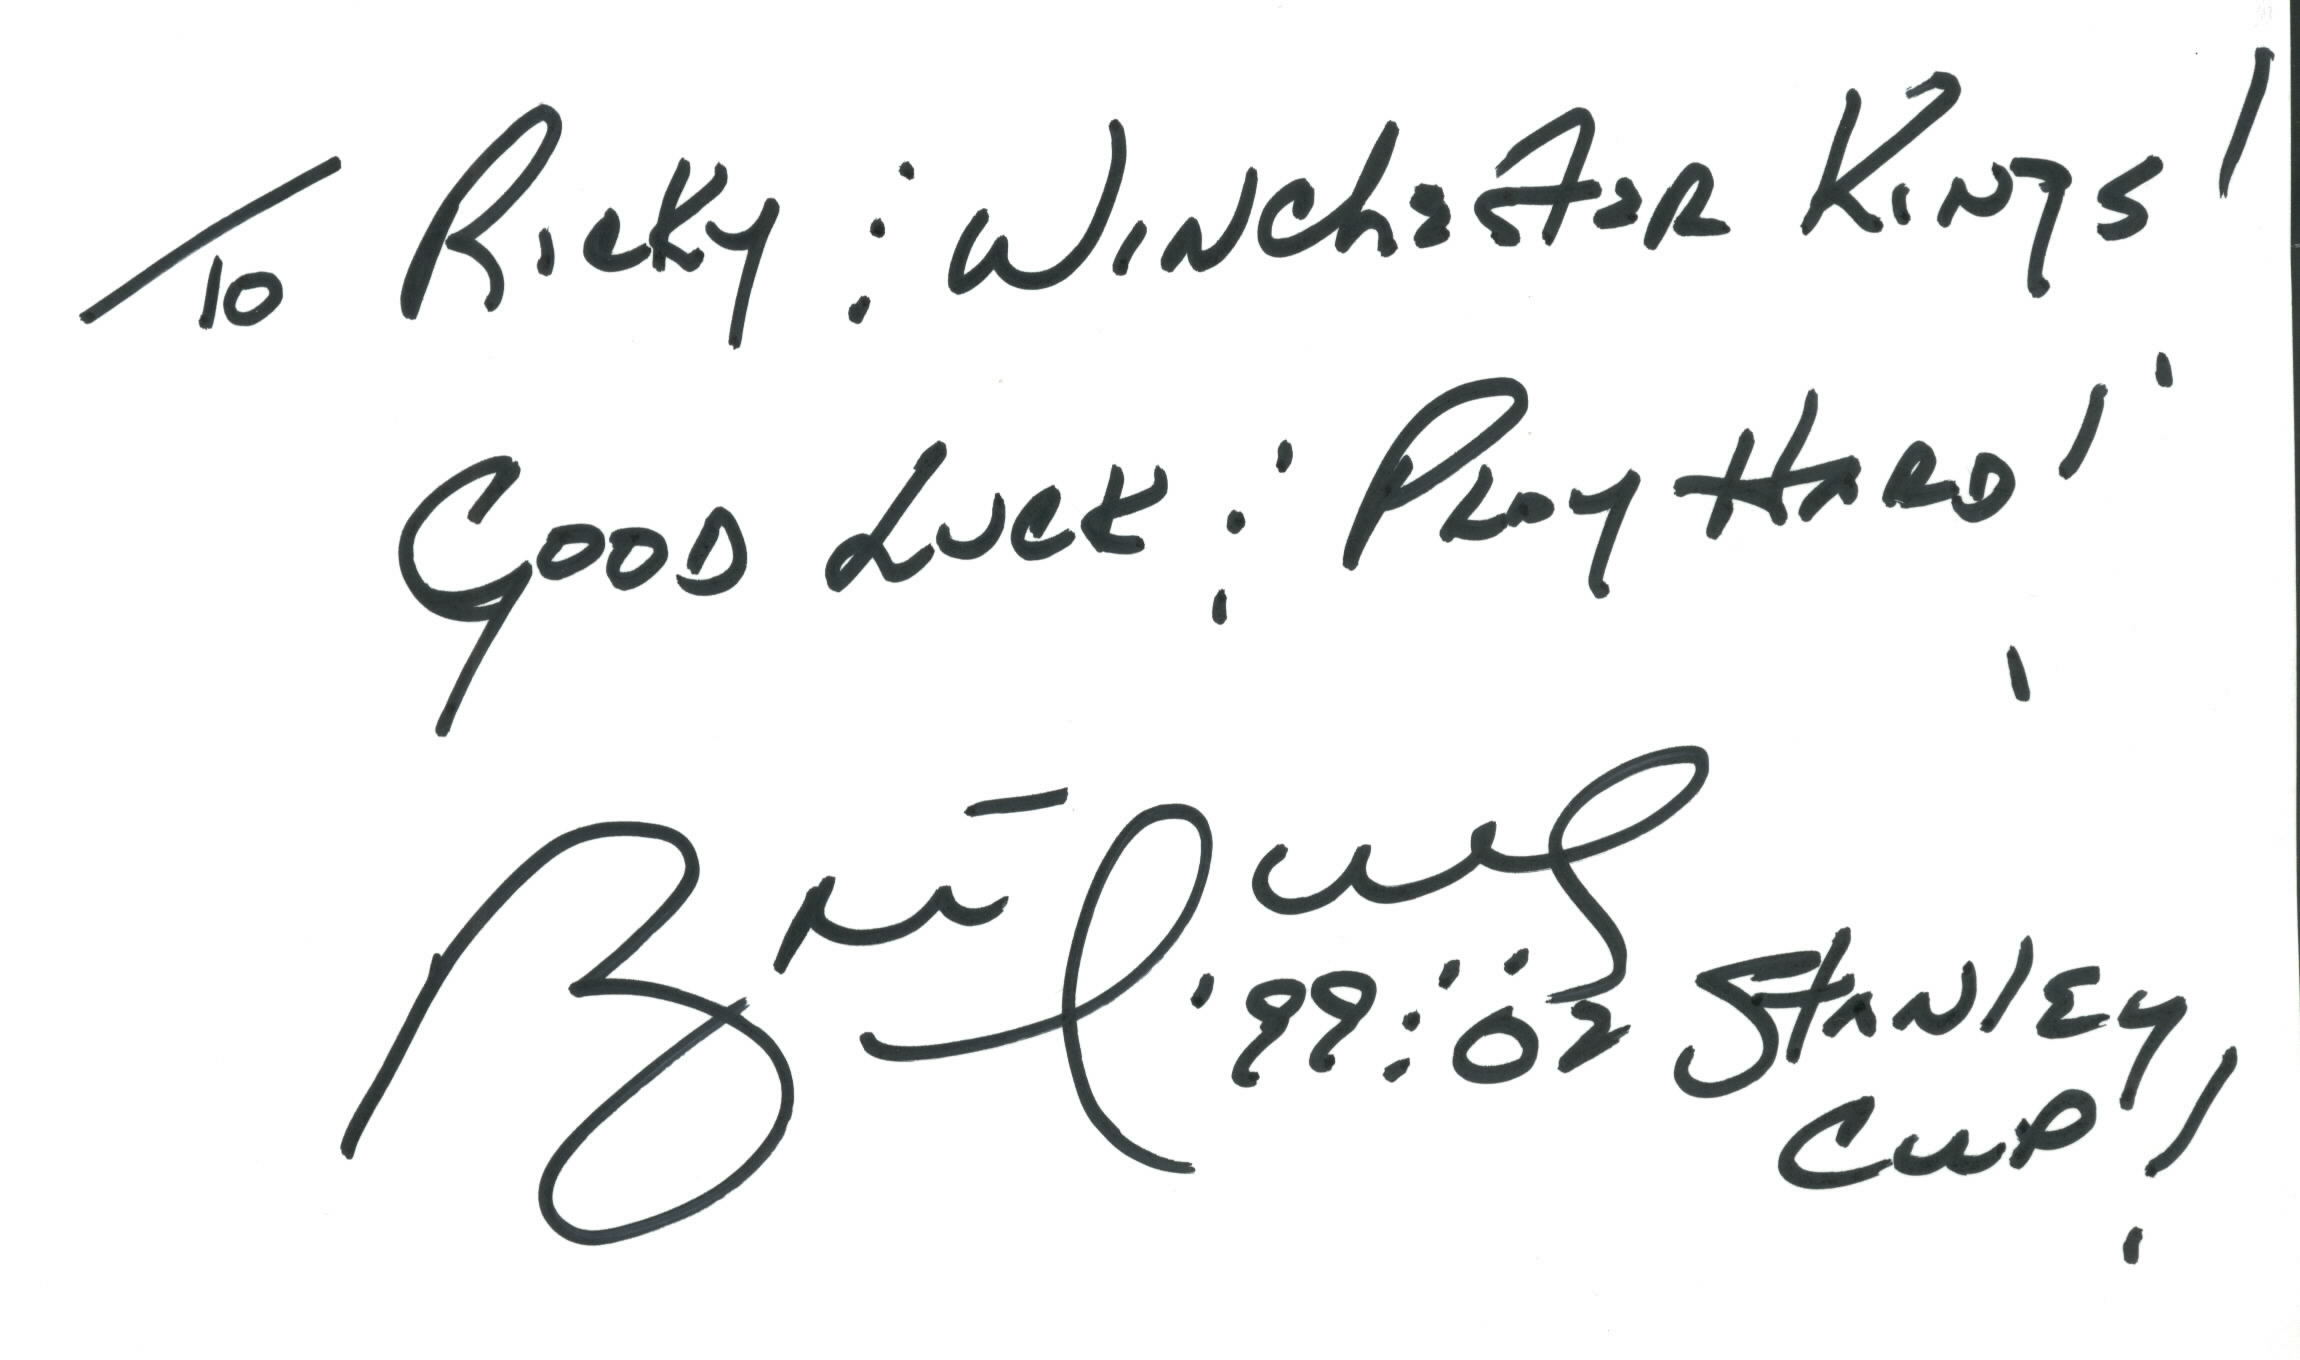 To Ricky : Winchester Kings!
Good Luck : Play Hard!
'99 : '02 Stanley
Cup!